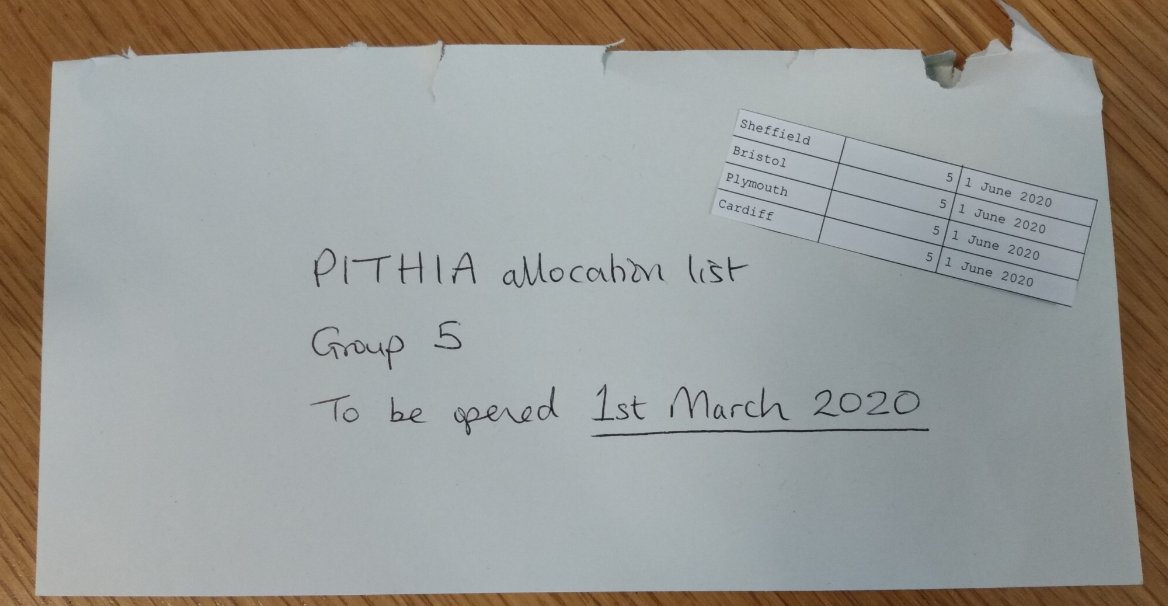 Sheffield 5 1 June 2020
Bristol 5 1 June 2020
Plymouth 5 1 June 2020
Cardiff 5 1 June 2020
PITHIA allocation list
Group 5
To be opened 1st March 2020